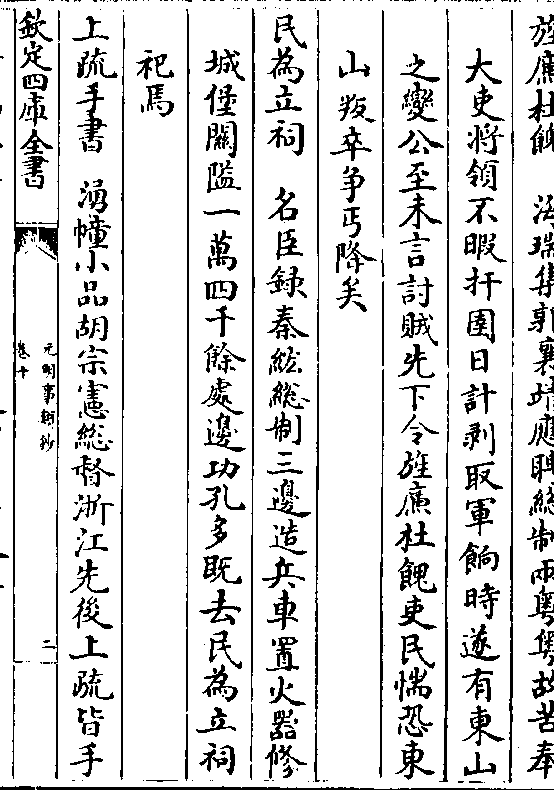 旌廉杜餽　海瑞集郭襄靖應聘總制兩粤粤故苦奉
大吏將領不暇扞圉日計剥取軍餉時遂有東山
之變公至未言討賊先下令旌廉杜餽吏民惴恐東
山叛卒争丐降矣
民為立祠　名臣録秦紘總制三邊造兵車置火器修
城堡關隘一萬四千餘處邊功孔多既去民為立祠
祀焉
上疏手書　湧幢小品胡宗憲總督浙江先後上疏皆手
欽定四庫全書
元明事類鈔
卷十
二